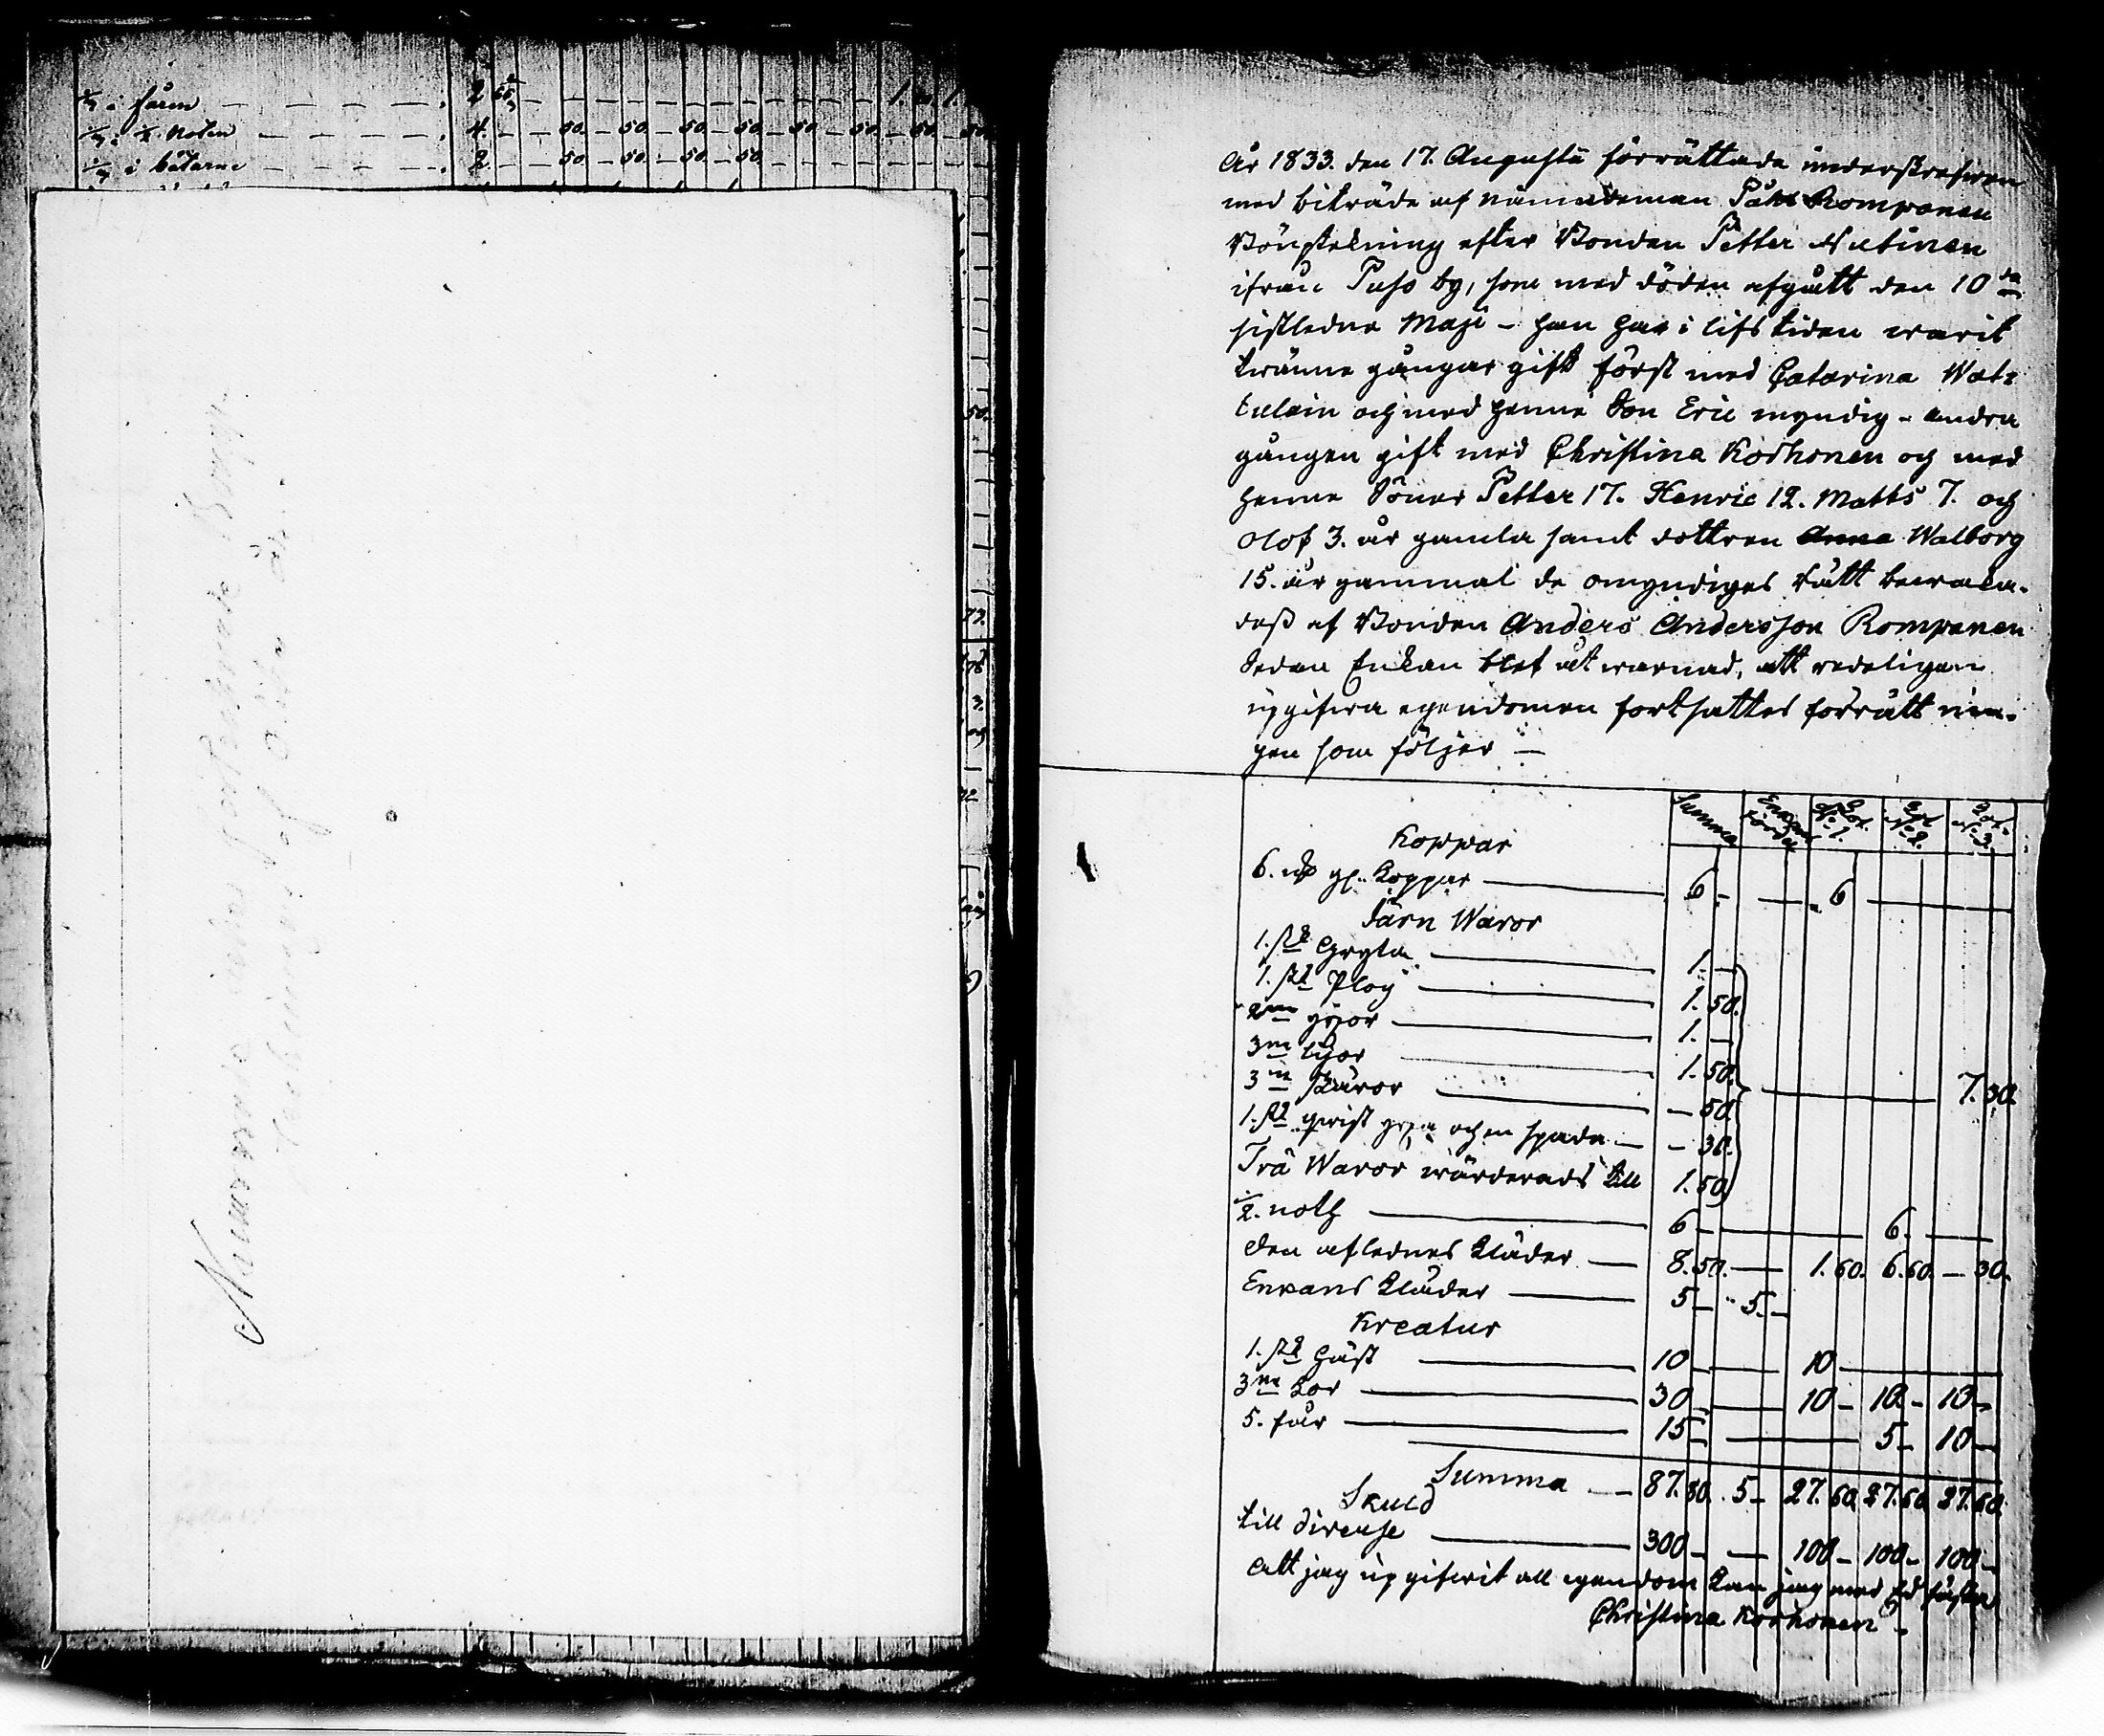 i fåren 2
i noten 4. 50. 50. 50. 50. 50. 50. 50.
i båtarne 2 50. 50. 50. 50.
År 1833. den 17. Augusti förrättade underskrefwen
med biträde af nämndeman Påhl Romponen
Bouptekning efter Bonden Petter Nutinen
ifrån Puso by, som med döden afgått den 10 de
sistledne Maji – han har i lifstiden warit
twänne gångar gift först med Catarina Wat-
tulain och med henne Son Eric myndig – andra
gången gift med Christina Korhonen och med
henne Söner Petter 17. Henric 12. Matts 7. och
Olof 3. år gamla samt dottren Anna Walborg
15. år gammal de omyndiges rätt bewaka-
des af Bonden Anders Andersson Romponen
Sedan Enkan blef åtwarnad, att redeligen
upgifwa egendomen fortsattes förrättnin-
gen som följer –
Summa Enkans fördel Lott No 1. Lott No 2. Lott No 3.
Koppar
6. gl. Koppar 6 – 6
Järn Waror
1. st Gryta 1. –
1. st Plog 1. 50.
2ne yxor 1. –
3ne lijor 1. 50. 7. 30.
3ne skäror – 50.
1. st qwist yxa och en spada – 30.
Trä Waror wärderades till 1. 50.
1/2. noth 6 – 6.
den aflednes kläder 8. 50. 1. 60. 6. 60. – 30.
Enkans kläder 5 – 5. –
Kreatur
1. st häst 10 – 10
3ne kor 30 – 10 – 10 – 10 –
5. får 15 – 5 – 10 –
Summa 87. 80. 5 – 27. 60. 27. 60. 27. 60.
Skuld
till diverse 300 – 100 – 100 – 100 –
Att jag upgifwit all egendom kan jag med Ed fästa
Christina Korhonen